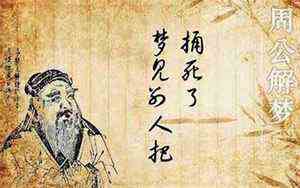 周公解梦
梦见别人把
捅死了